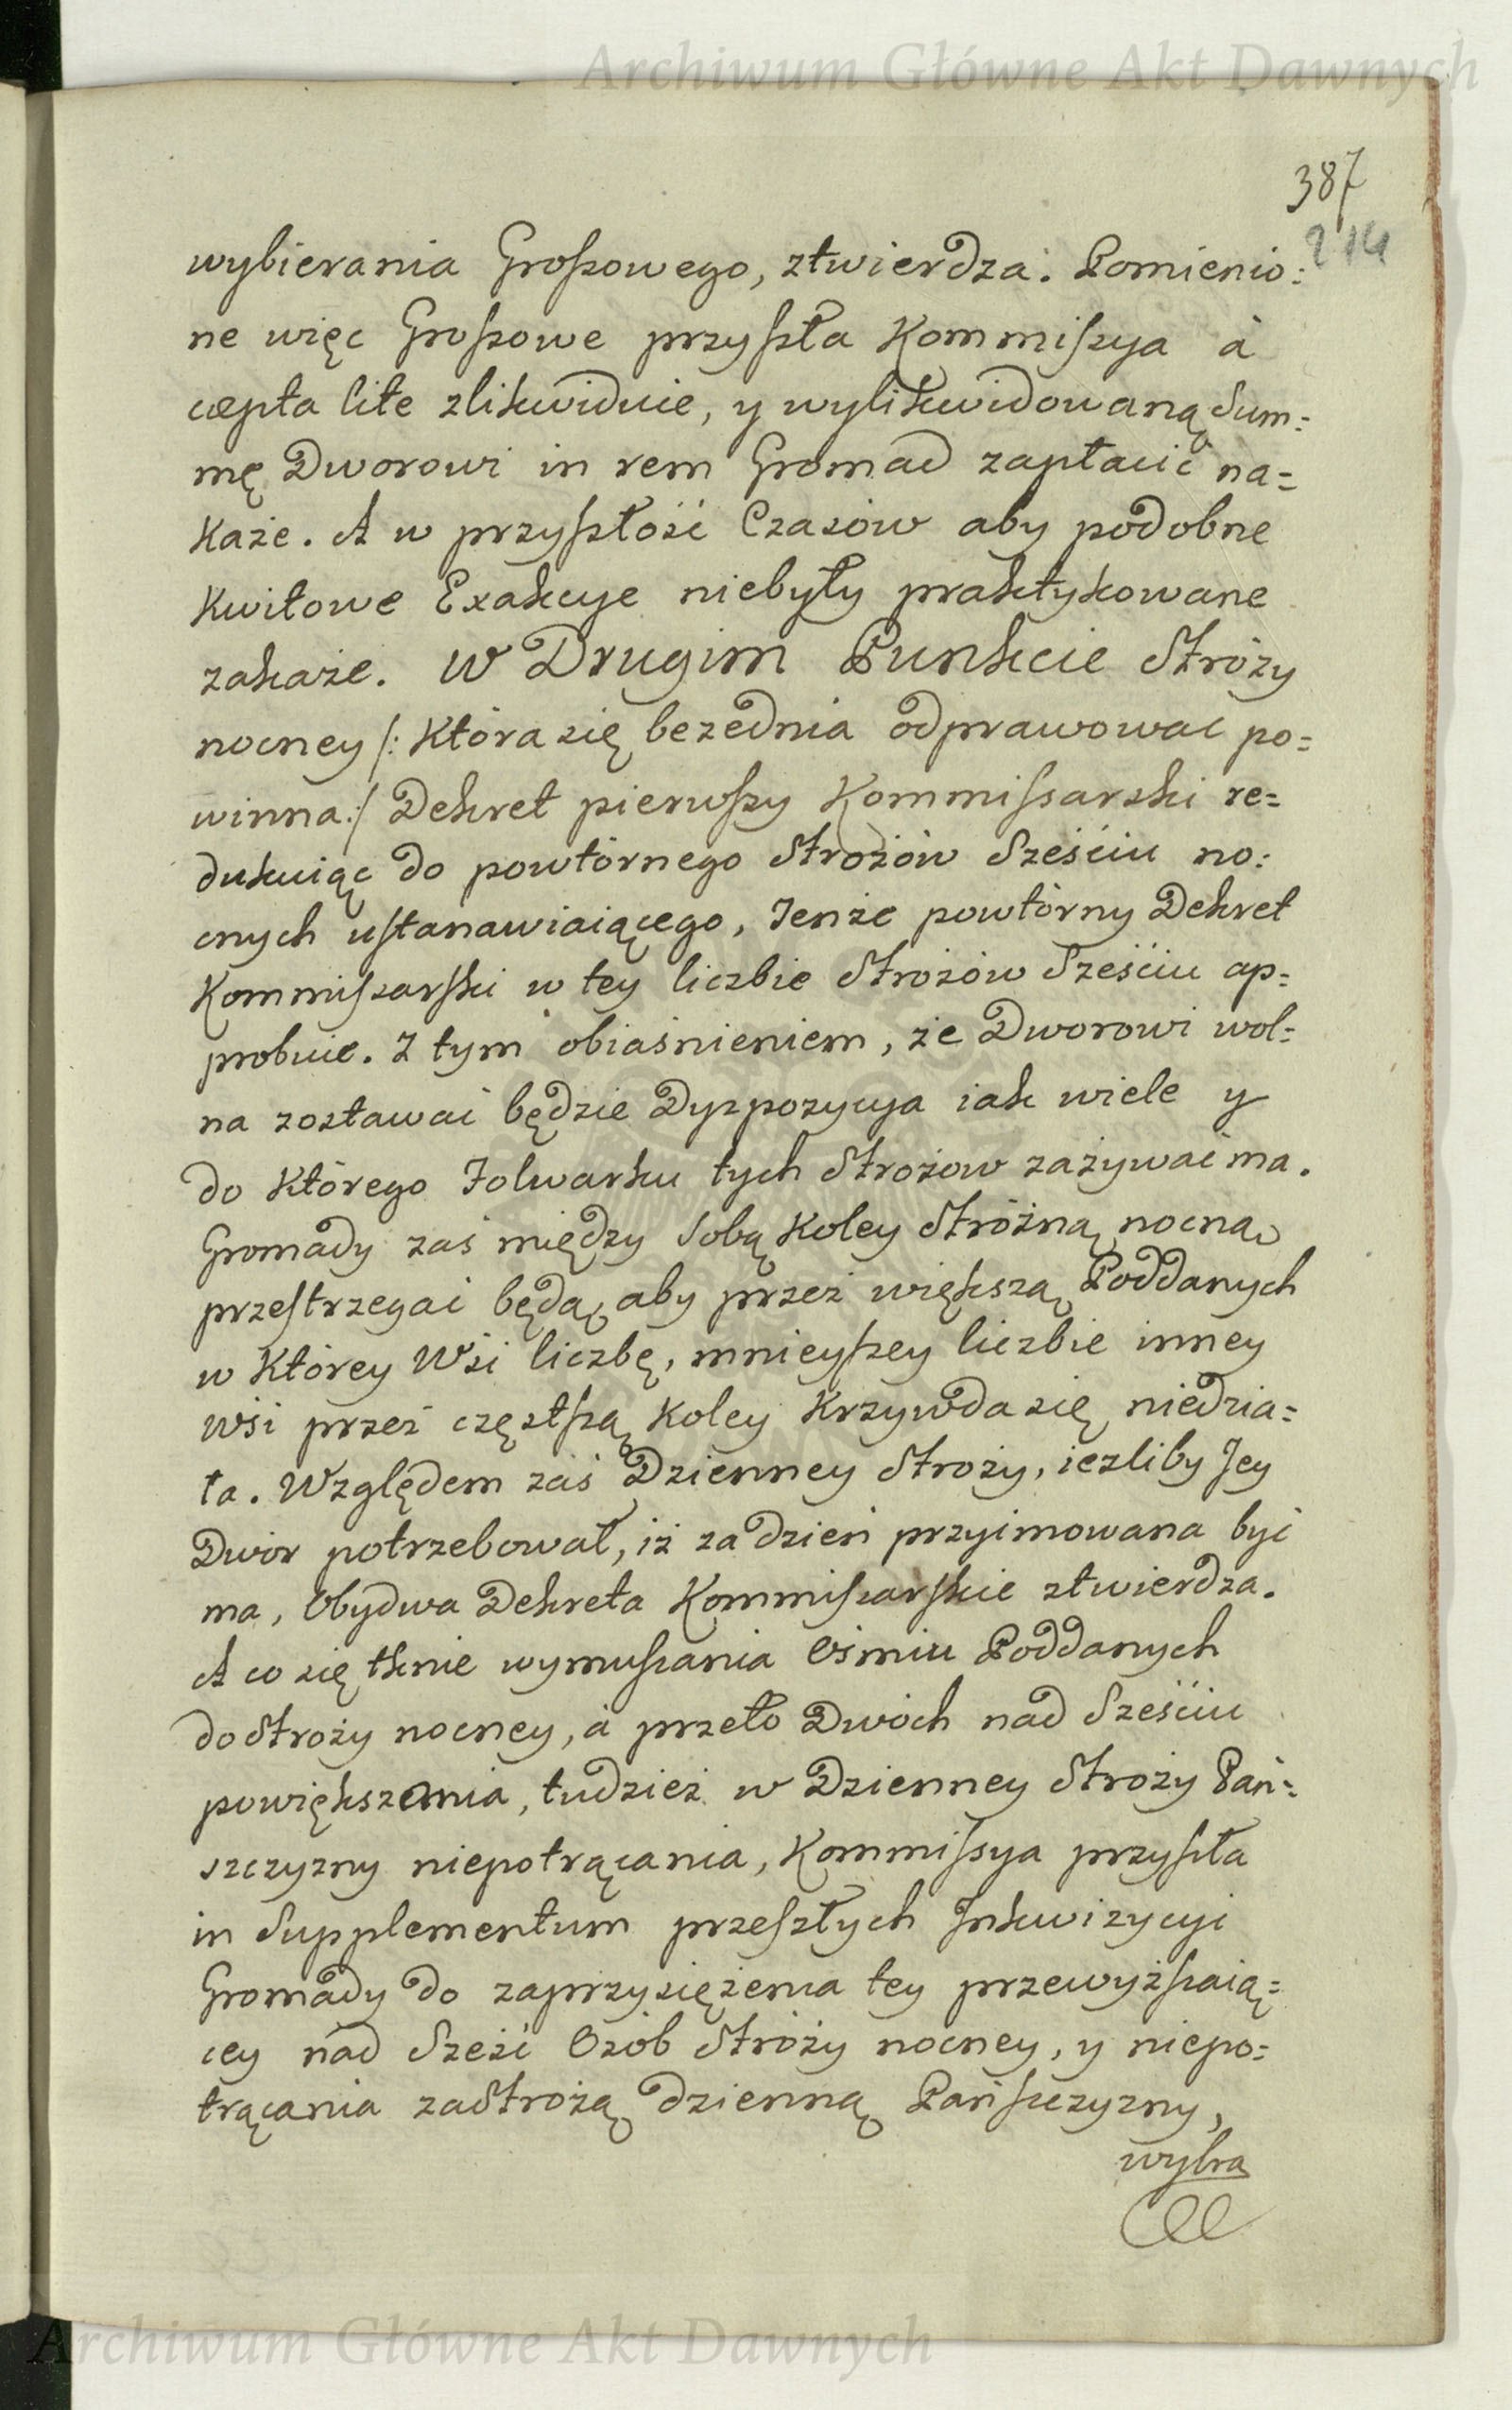 Archiwum Główne Akt Dawnych
387
214
wybierania Groszowego, ztwierdza. Pomienio:
ne więc Groszowe przyszła Kommiszya à
cæpta lite zlikwiduie, y wylikwidowaną Sum:
mę Dworowi in rem Gromad zapłacić na=
każe. A w przyszłość Czasów aby podobne
Kwitowe Exakcye niebyły praktykowane
zakaże. W Drugim Punkcie Stróży
nocney /: Która się bezednia odprawować po=
winna :/ Dekret pierwszy Kommissarski re=
dukuiąc do powtórnego Stróżów Sześciu no:
cnych ustanawiaiącego, Tenże powtórny Dekret
Kommiszarski w tey liczbie Stróżów Sześciu ap=
probuie. Z tym obiaśnieniem, że Dworowi wol=
na zostawać będzie Dyspozycya iak wiele y
do Którego Folwarku tych Stróżow zażywać ma.
Gromady zaś między Sobą Koley Stróżną nocną
przestrzegać będą, aby przez większą Poddanych
w Którey Wsi liczbę, mnieyszey liczbie inney
Wsi przez częstszą Koley Krzywda się niedzia=
ła. Względem zaś Dzienney Stroży, iezliby Jey
Dwór potrzebował, iż za dzień przyimowana być
ma, Obydwa Dekreta Kommiszarskie ztwierdza.
A co się tknie wymuszania Ośmiu Poddanych
do Stroży nocney, à przeto Dwóch nad Sześciu
powiększania, tudzież w Dzienney Stroży Pań=
szczyzny niepotrącania, Kommissya przyszła
in Supplementum przeszłych Inkwizycyi
Gromady do zaprzysiężenia tey przewyższaią=
cey nad Sześć Osób Stróży nocney, y niepo=
trącania za Stróżą dzienną Pańszczyzny,
wybra
Archiwum Główne Akt Dawnych